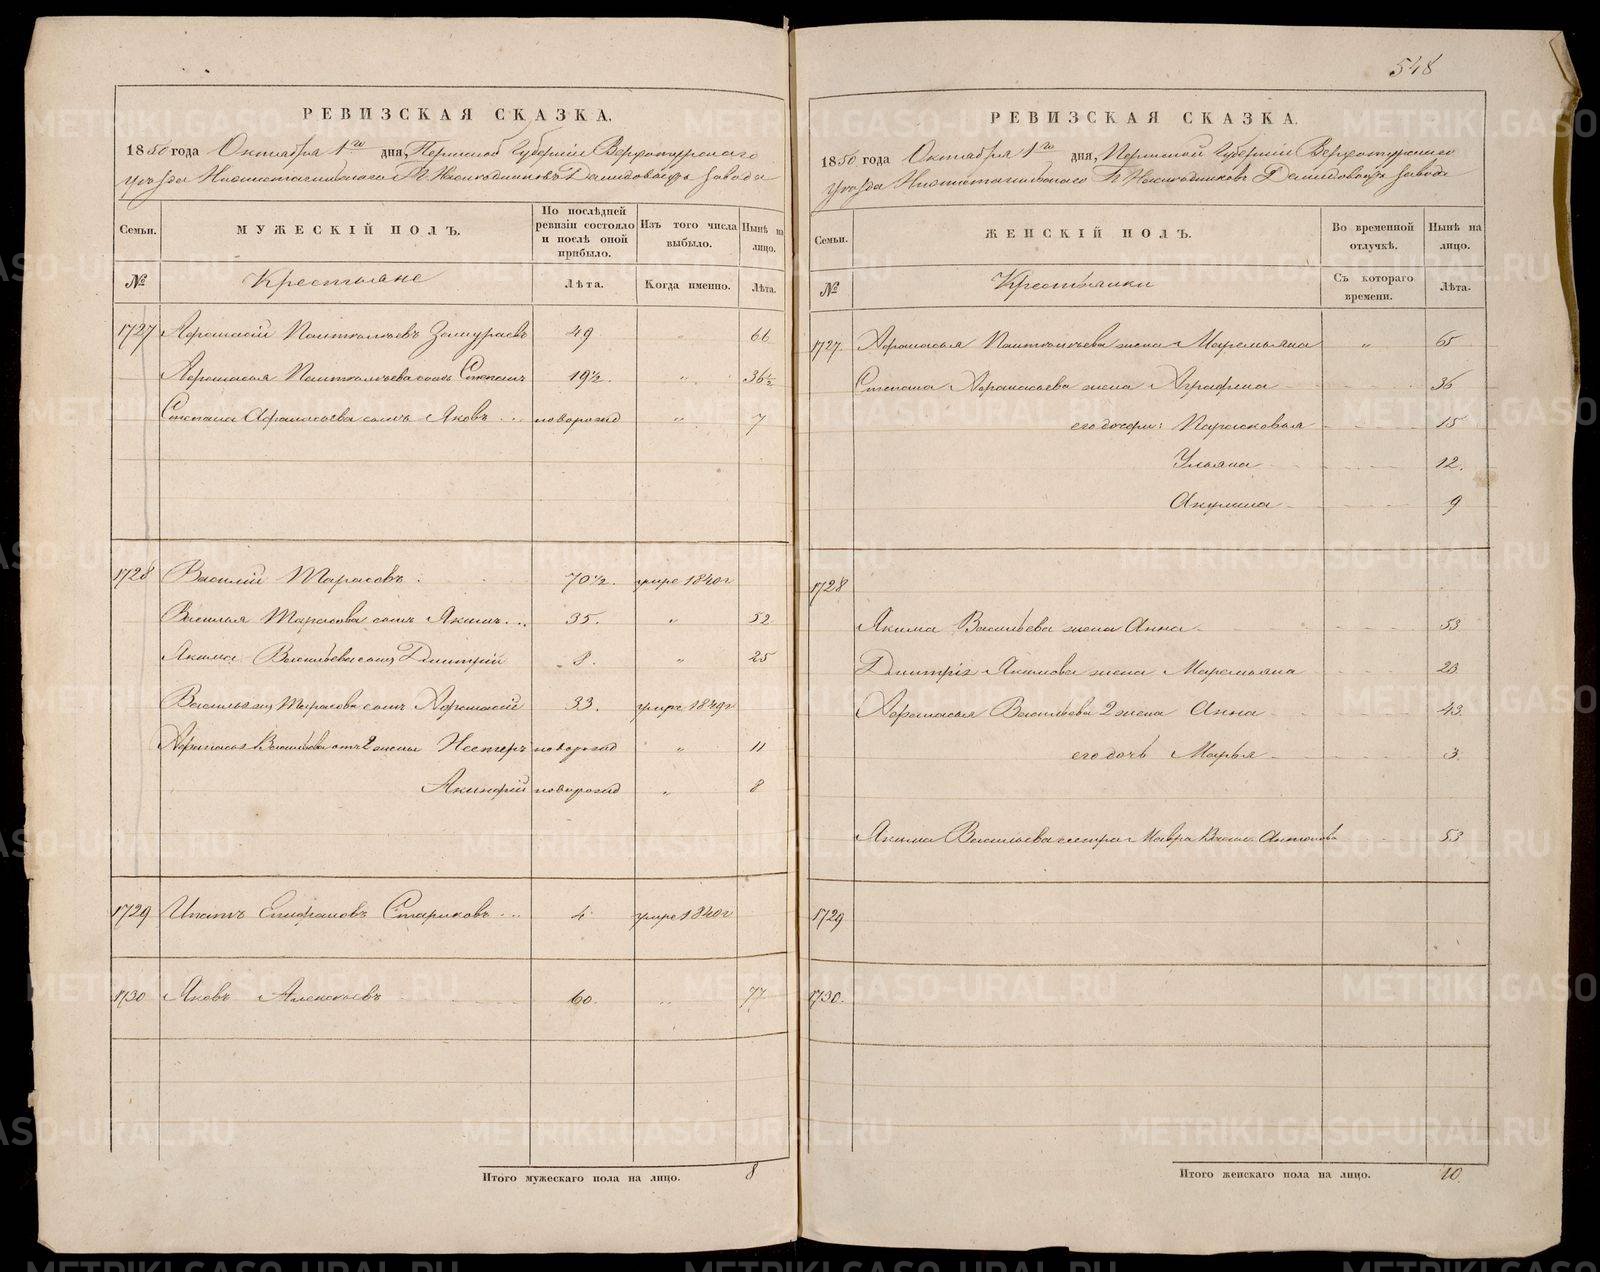 548
РЕВИЗСКАЯ СКАЗКА.
1850 года Октября 1го дня, Пермской Губернии Верхотурскаго
уезда Нижнетагильскаго Гг. Наследниковъ Демидовыхъ завода
Семьи.
МУЖЕСКІЙ ПОЛЪ.
По послѣдней ревизіи состояло и послѣ оной прибыло.
Изъ того числа выбыло.
Нынѣ на лицо.
№
Крестьяне
Лѣта.
Когда именно.
Лѣта.
1727 Афонасій 49 " 66
Афонасья сынъ Степанъ 19½. " 36½
Степана Афонасьева сынъ Яковъ новорожд " 7
1728 Василій Тарасовъ 70½. умре 1840г
Василья Тарасова сынъ Якимъ 35. " 52
Якима Васильева сынъ Дмитрій 8. " 25
Василья Тарасова сынъ Афонасій 33. умре 1849г
Афонасья Васильева отъ 2 жены Нестеръ новорожд " 11
Акинфій новорожд " 8
1729 Ипатъ Епифановъ Стариковъ 4 умре 1840г
1730 Яковъ Алексѣевъ 60. " 77
Итого мужескаго пола на лицо. 8
РЕВИЗСКАЯ СКАЗКА.
1850 года Октября 1го дня, Пермской Губерніи Верхотурскаго
уезда Нижнетагильскаго Гг. Наследниковъ Демидовыхъ завода
Семьи.
ЖЕНСКІЙ ПОЛЪ.
Во временной отлучкѣ.
Нынѣ на лицо.
№
Крестьянки
Съ котораго времени.
Лѣта.
1727. Афонасья жена Маремьяна " 65
Степана Афонасьева жена Аграфена 36
его дочери: Парасковья 15
Ульяна 12.
Акулина 9
1728
Якима Васильева жена Анна 53
Дмитрія Якимова жена Маремьяна 23
Афонасья Васильева 2 жена Анна 43
его дочь Марья 3.
Якима Васильева сестра Мавра 53
1729
1730.
Итого женскаго пола на лицо. 10.
METRIKI.GASO-URAL.RU